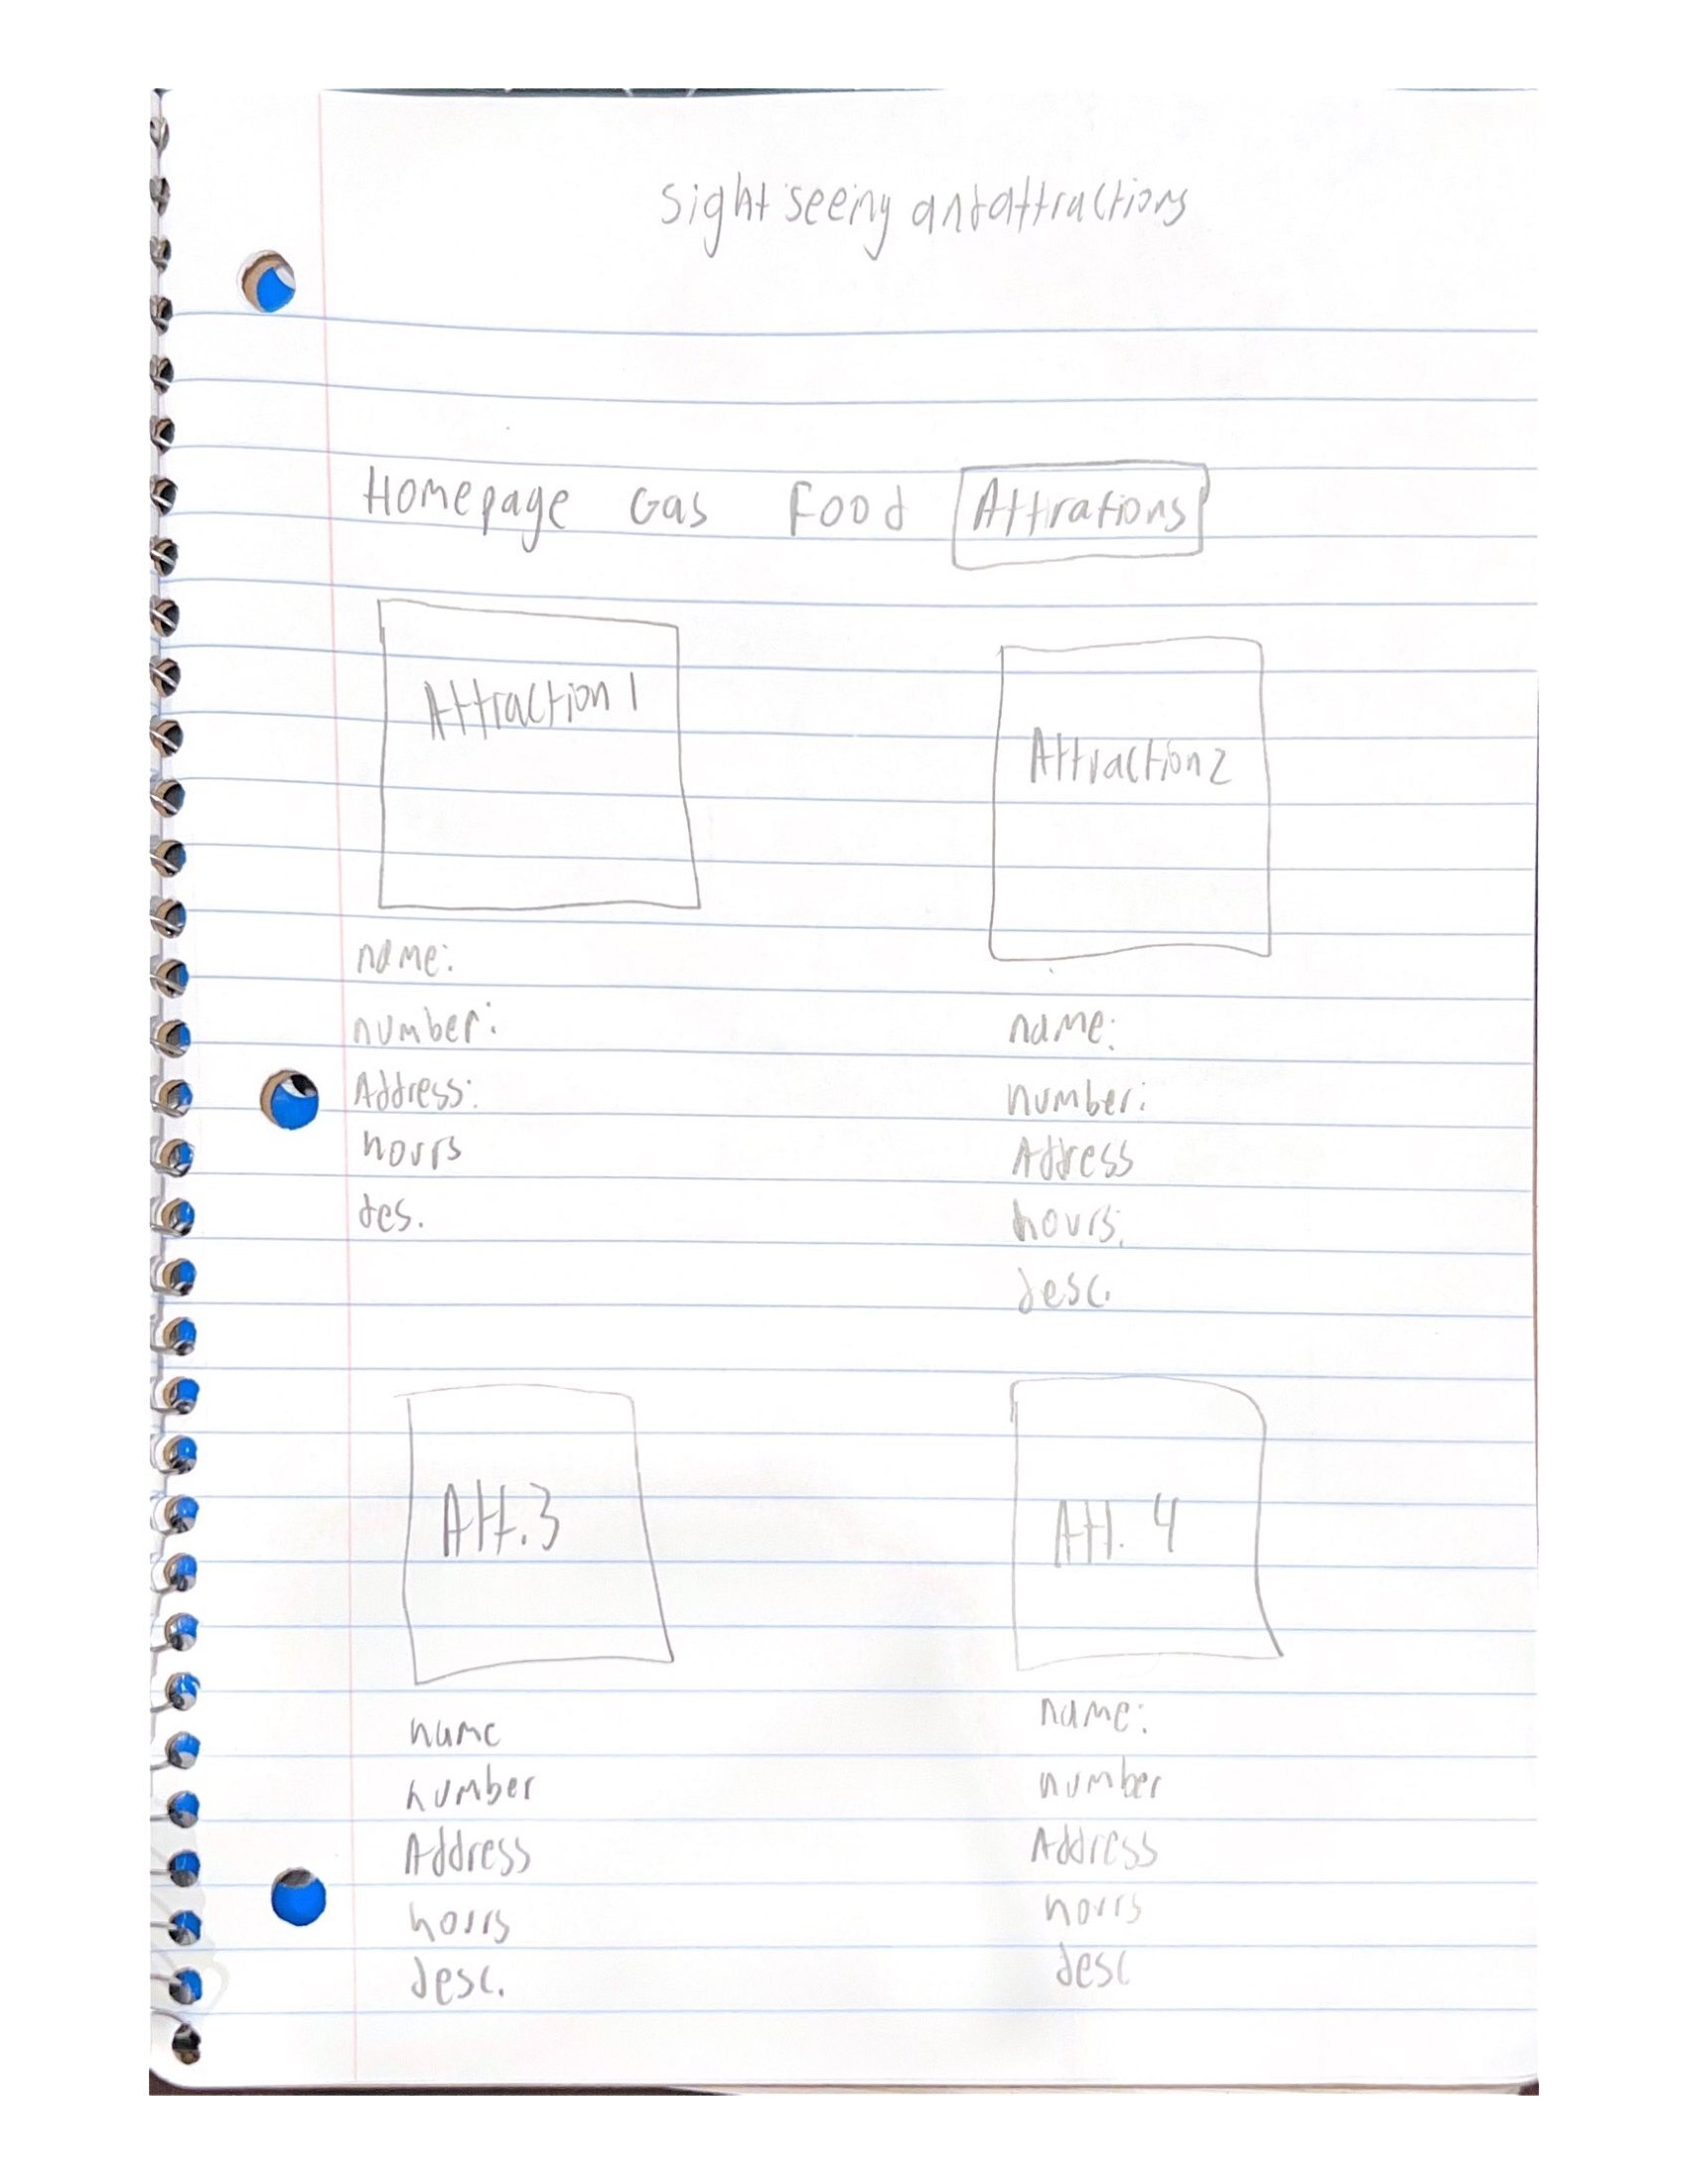 sight seeing and attractions
Homepage Gas Food Attrations
Attraction 1
name:
number:
Address:
hours
des.
Attraction 2
name:
number:
Address
hours:
desc.
Att. 3
name
number
Address
hours
desc.
Att. 4
name:
number
Address
hours
desc